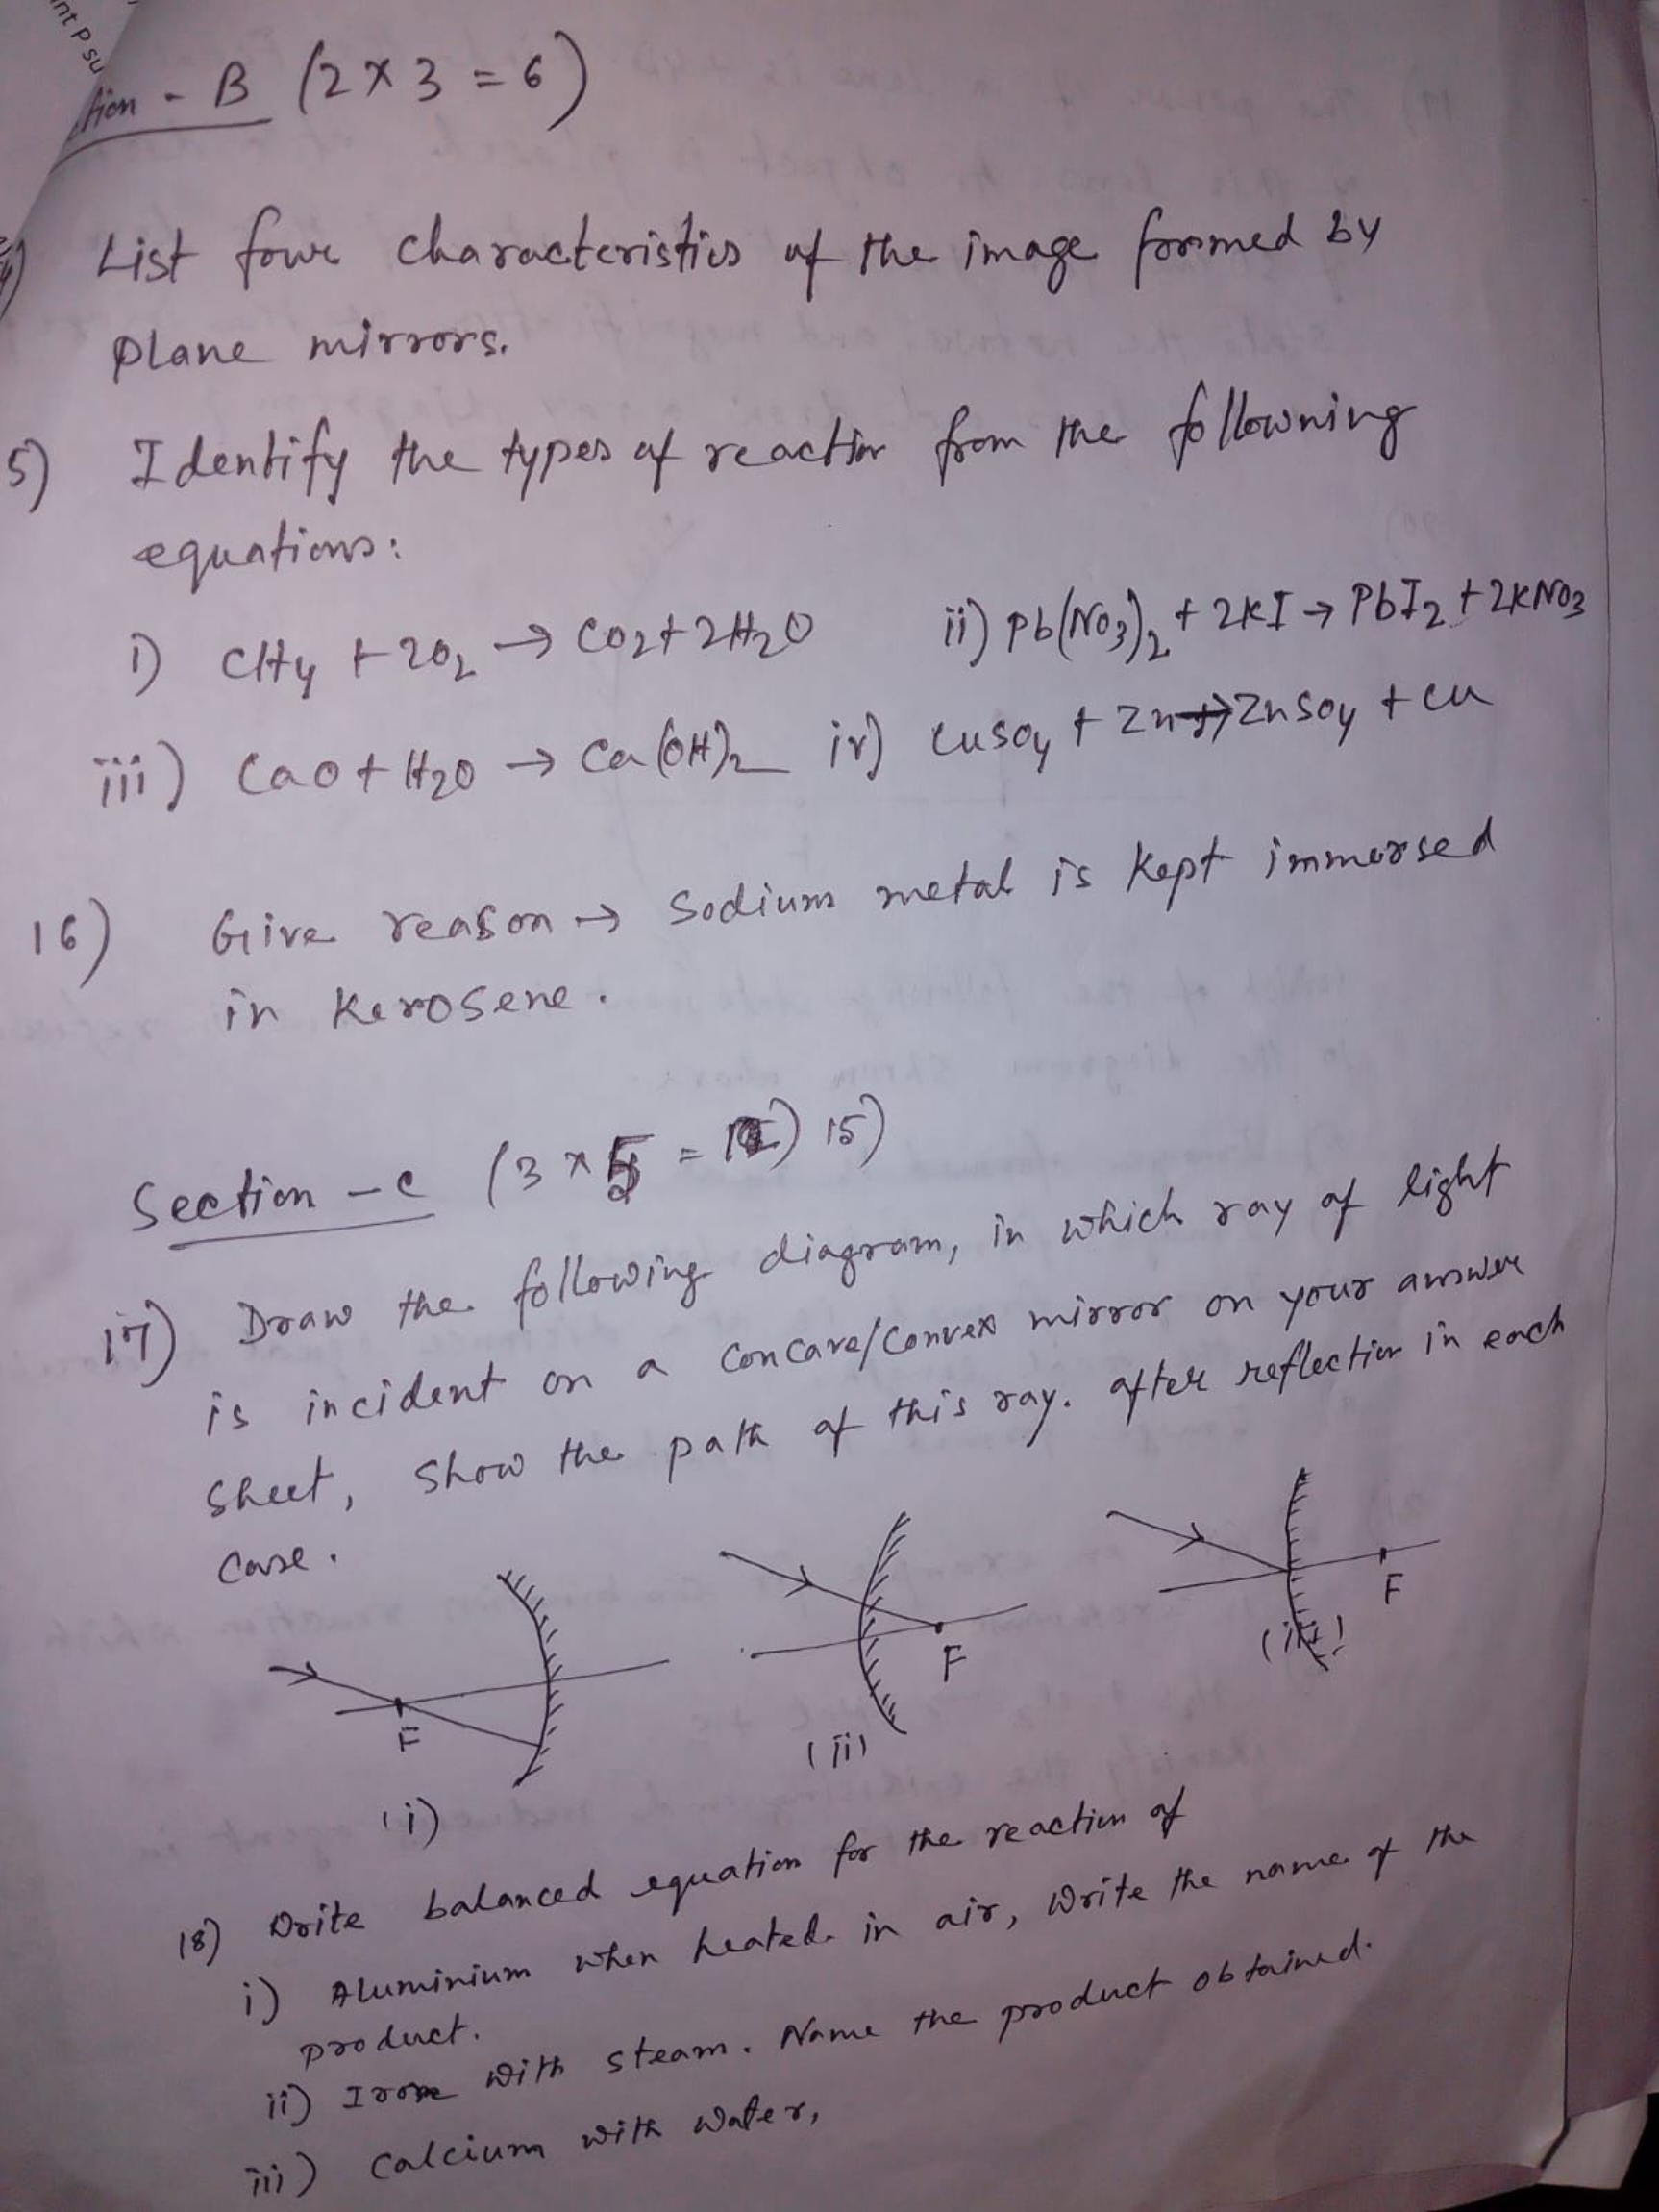 nt P su
tion - B (2 × 3 = 6)
List four characteristics of the image formed by
plane mirrors.
5) Identify the types of reaction from the followning
equations:
i) CH4 + 2O2 → CO2 + 2H2O ii) Pb(NO3)2 + 2KI → PbI2 + 2KNO3
iii) CaO + H2O → Ca(OH)2 iv) CuSO4 + Zn → ZnSO4 + Cu
16) Give reason → Sodium metal is kept immersed
in kerosene.
Section - C (3 × 5 = 15)
17) Draw the following diagram, in which ray of light
is incident on a concave/convex mirror on your answer
sheet, show the path of this ray. after reflection in each
case.
F
F
F
(i)
(ii)
(iii)
18) Write balanced equation for the reaction of
i) Aluminium when heated in air, write the name of the
product.
ii) Iron with steam. Name the product obtained.
iii) Calcium with water,